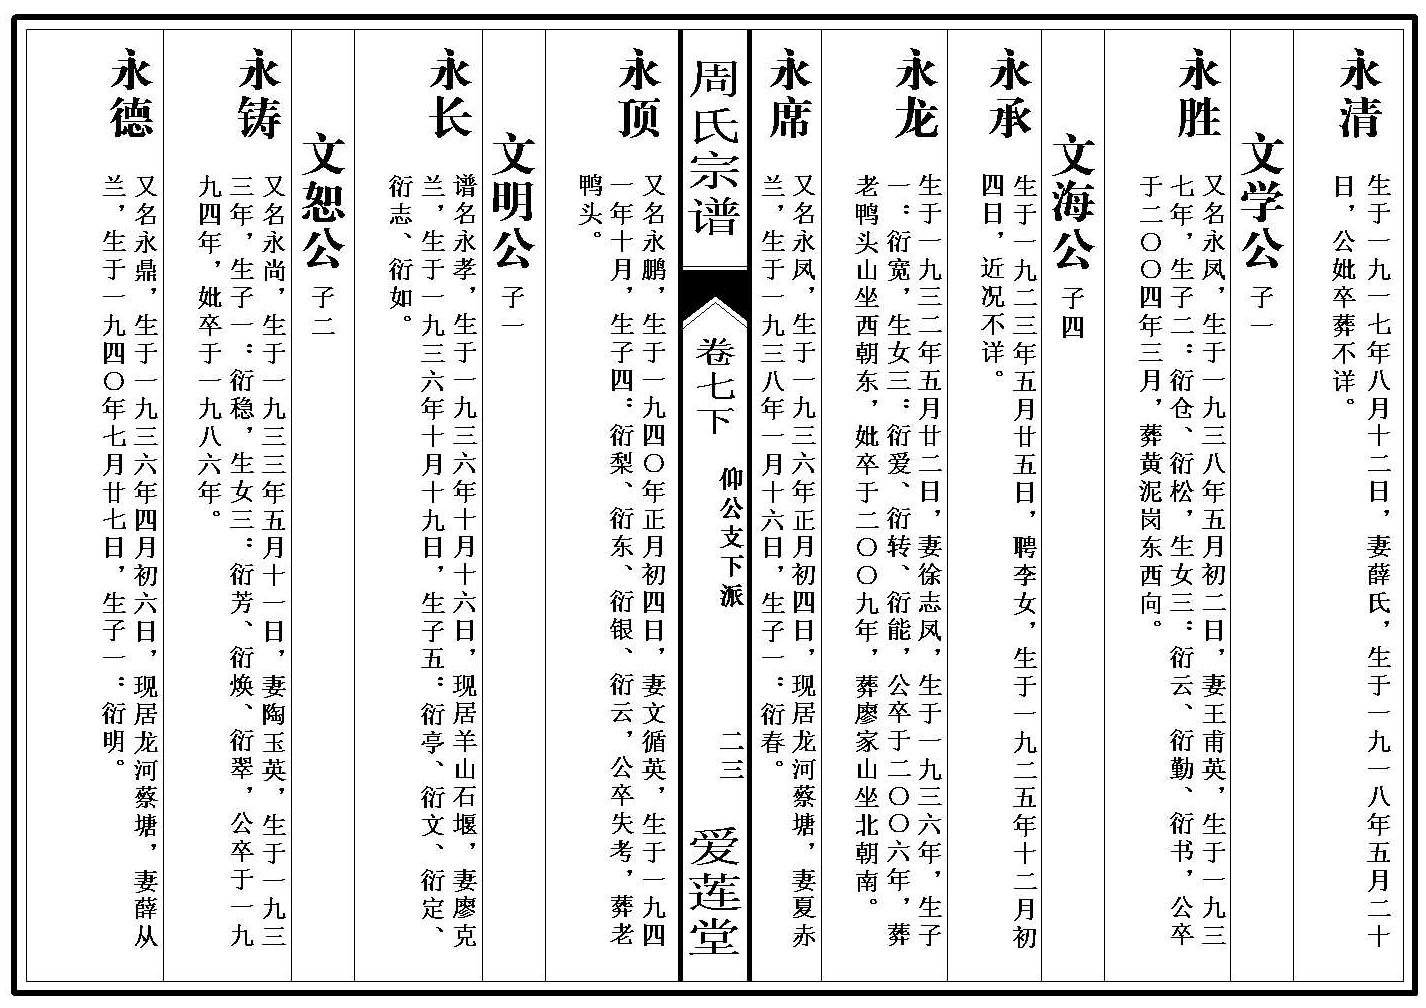 永清
生于一九一七年八月十二日，妻薛氏，生于一九一八年五月二十
日，公妣卒葬不详。
文学公 子一
永胜
又名永凤，生于一九三八年五月初二日，妻王甫英，生于一九三
七年，生子二：衍仓、衍松，生女三：衍云、衍勤、衍书，公卒
于二〇〇四年三月，葬黄泥岗东西向。
文海公 子四
永承
生于一九二三年五月廿五日，聘李女，生于一九二五年十二月初
四日，近况不详。
永龙
生于一九三二年五月廿二日，妻徐志凤，生于一九三六年，生子
一：衍宽，生女三：衍爱、衍转、衍能，公卒于二〇〇六年，葬
老鸭头山坐西朝东，妣卒于二〇〇九年，葬廖家山坐北朝南。
永席
又名永凤，生于一九三六年正月初四日，现居龙河蔡塘，妻夏赤
兰，生于一九三八年一月十六日，生子一：衍春。
周氏宗谱
卷七下
仰公支下派
二三
爱莲堂
永顶
又名永鹏，生于一九四〇年正月初四日，妻文循英，生于一九四
一年十月，生子四：衍梨、衍东、衍银、衍云，公卒失考，葬老
鸭头。
文明公 子一
永长
谱名永孝，生于一九三六年十月十六日，现居羊山石堰，妻廖克
兰，生于一九三六年十月十九日，生子五：衍亭、衍文、衍定、
衍志、衍如。
文恕公 子二
永铸
又名永尚，生于一九三三年五月十一日，妻陶玉英，生于一九三
三年，生子一：衍稳，生女三：衍芳、衍焕、衍翠，公卒于一九
九四年，妣卒于一九八六年。
永德
又名永鼎，生于一九三六年四月初六日，现居龙河蔡塘，妻薛从
兰，生于一九四〇年七月廿七日，生子一：衍明。